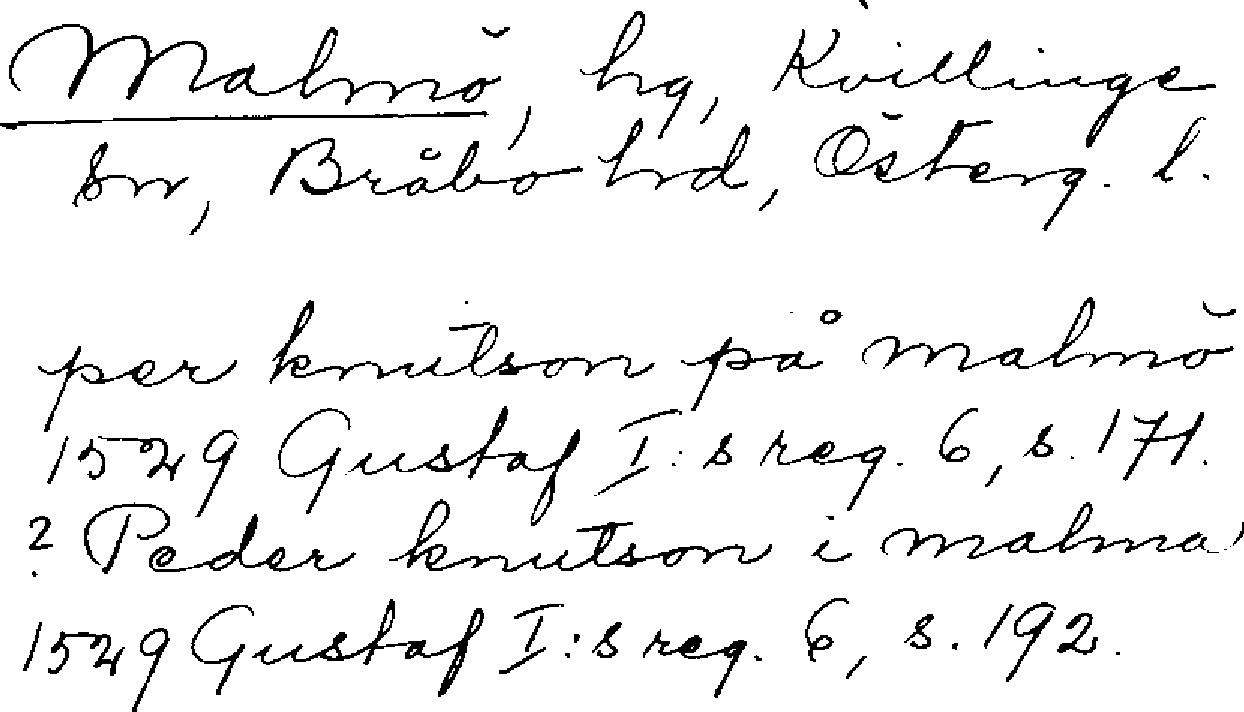 Malmö, hg, Kvillinge
sn, Bråbo hd, Österg. l.
per knutson på malmö
1529 Gustaf I:s reg. 6, s. 171.
? Peder knutson i malma
1529 Gustaf I:s reg. 6, s. 192.